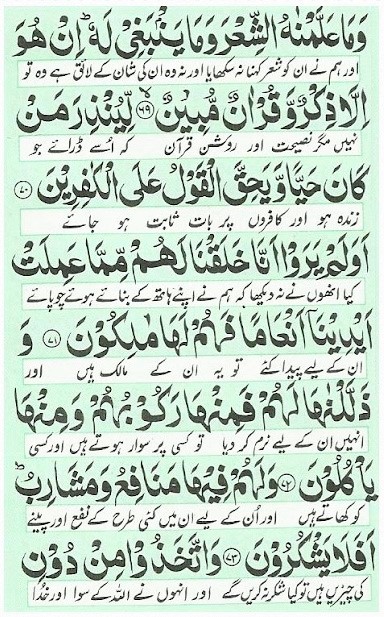 وَمَا عَلَّمْنٰهُ الشِّعْرَ وَمَا يَنْۢبَغِيْ لَهٗ ؕ اِنْ هُوَ
اور ہم نے ان کو شعر کہنا نہ سکھایا اور نہ وہ ان کی شان کے لائق ہے وہ تو
اِلَّا ذِكْرٌ وَّ قُرْاٰنٌ مُّبِيْنٌ ۙ﴿۶۹﴾ لِّيُنْذِرَ مَنْ
نہیں مگر نصیحت اور روشن قرآن کہ اُسے ڈرائے جو
كَانَ حَيًّا وَّيَحِقَّ الْقَوْلُ عَلَى الْكٰفِرِيْنَ ﴿۷۰﴾
زندہ ہو اور کافروں پر بات ثابت ہو جائے
اَوَلَمْ يَرَوْا اَنَّا خَلَقْنَا لَهُمْ مِّمَّا عَمِلَتْ
کیا انھوں نے نہ دیکھا کہ ہم نے اپنے ہاتھ کے بنائے ہوئے چوپائے
اَيْدِيْنَاۤ اَنْعَامًا فَهُمْ لَهَا مٰلِكُوْنَ ﴿۷۱﴾ وَ
ان کے لیے پیدا کئے تو یہ ان کے مالک ہیں اور
ذَلَّلْنٰهَا لَهُمْ فَمِنْهَا رَكُوْبُهُمْ وَمِنْهَا
انہیں ان کے لیے نرم کر دیا تو کسی پر سوار ہوتے ہیں اور کسی
يَاْكُلُوْنَ ﴿۷۲﴾ وَلَهُمْ فِيْهَا مَنَافِعُ وَمَشَارِبُ ؕ
کو کھاتے ہیں اور اُن کے لیے ان میں کئی طرح کے نفع اور پینے
اَفَلَا يَشْكُرُوْنَ ﴿۷۳﴾ وَاتَّخَذُوْا مِنْ دُوْنِ
کی چیزیں ہیں تو کیا شکر نہ کریں گے اور انہوں نے اللہ کے سوا اور خُدا